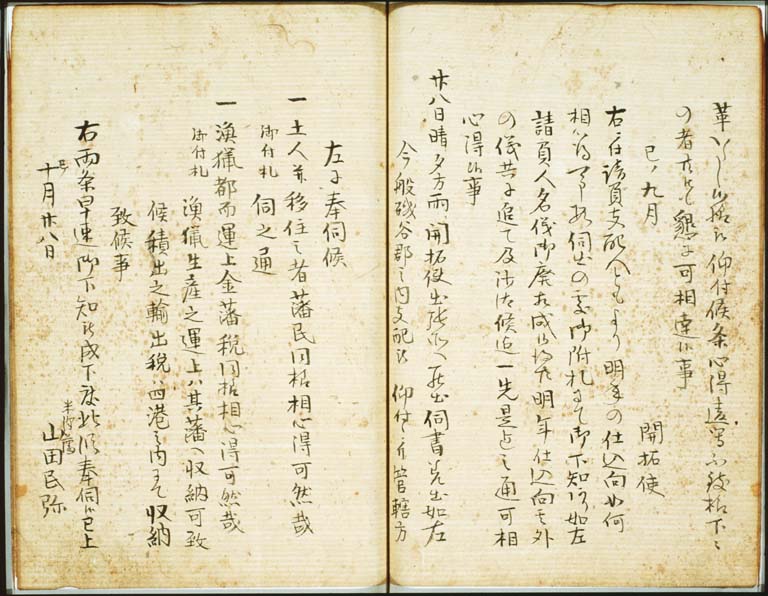 革いたし候格被 仰付候条心得違等不致様下々
の者共江も懇ニ可相達候事
巳ノ九月
開拓使
右ニ付請負支配人ともより明年の仕込向如何
相心得可申哉伺出の処御附札ニて御下知有之如左
請負人名儀御廃相成候得共明年仕込向其外
の儀共ニ追て及沙汰候迄一先是迄之通可相
心得候事
廿八日晴夕方雨 開拓使出張所へ罷出伺書差出如左
今般磯谷郡之内支配被 仰付候ニ付管轄方
左ニ奉伺候
一 土人并移住之者藩民同格相心得可然哉
御付札 伺之通
一 漁猟都而運上金藩税同格相心得可然哉
御付札 漁猟生産之運上ハ其藩へ収納可致
候積出之輸出税ハ四港之内ニて収納
致候事
右両条早速御下知被成下度此段奉伺候已上
巳
十月廿八日
米沢藩
山田民弥